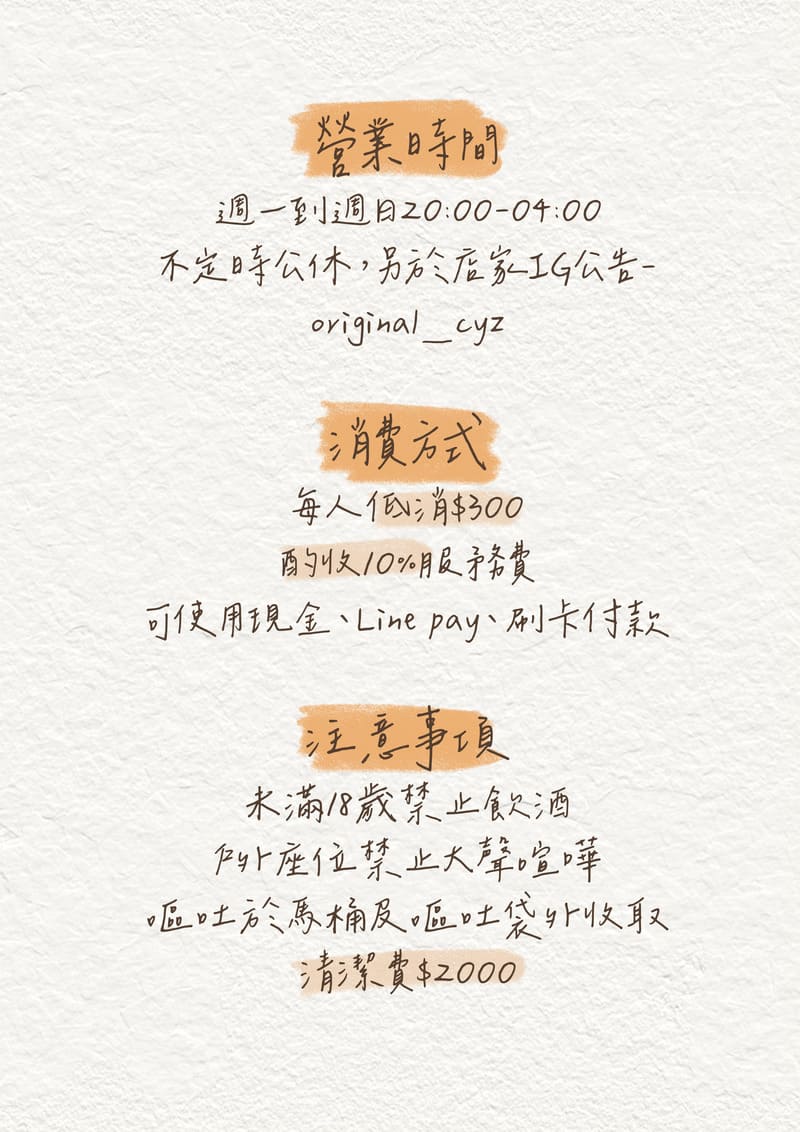 營業時間
週一到週日20:00-04:00
不定時公休，另於店家IG公告-
original_cyz
消費方式
每人低消$300
酌收10%服務費
可使用現金、Line pay、刷卡付款
注意事項
未滿18歲禁止飲酒
戶外座位禁止大聲喧嘩
嘔吐於馬桶及嘔吐袋外收取
清潔費$2000